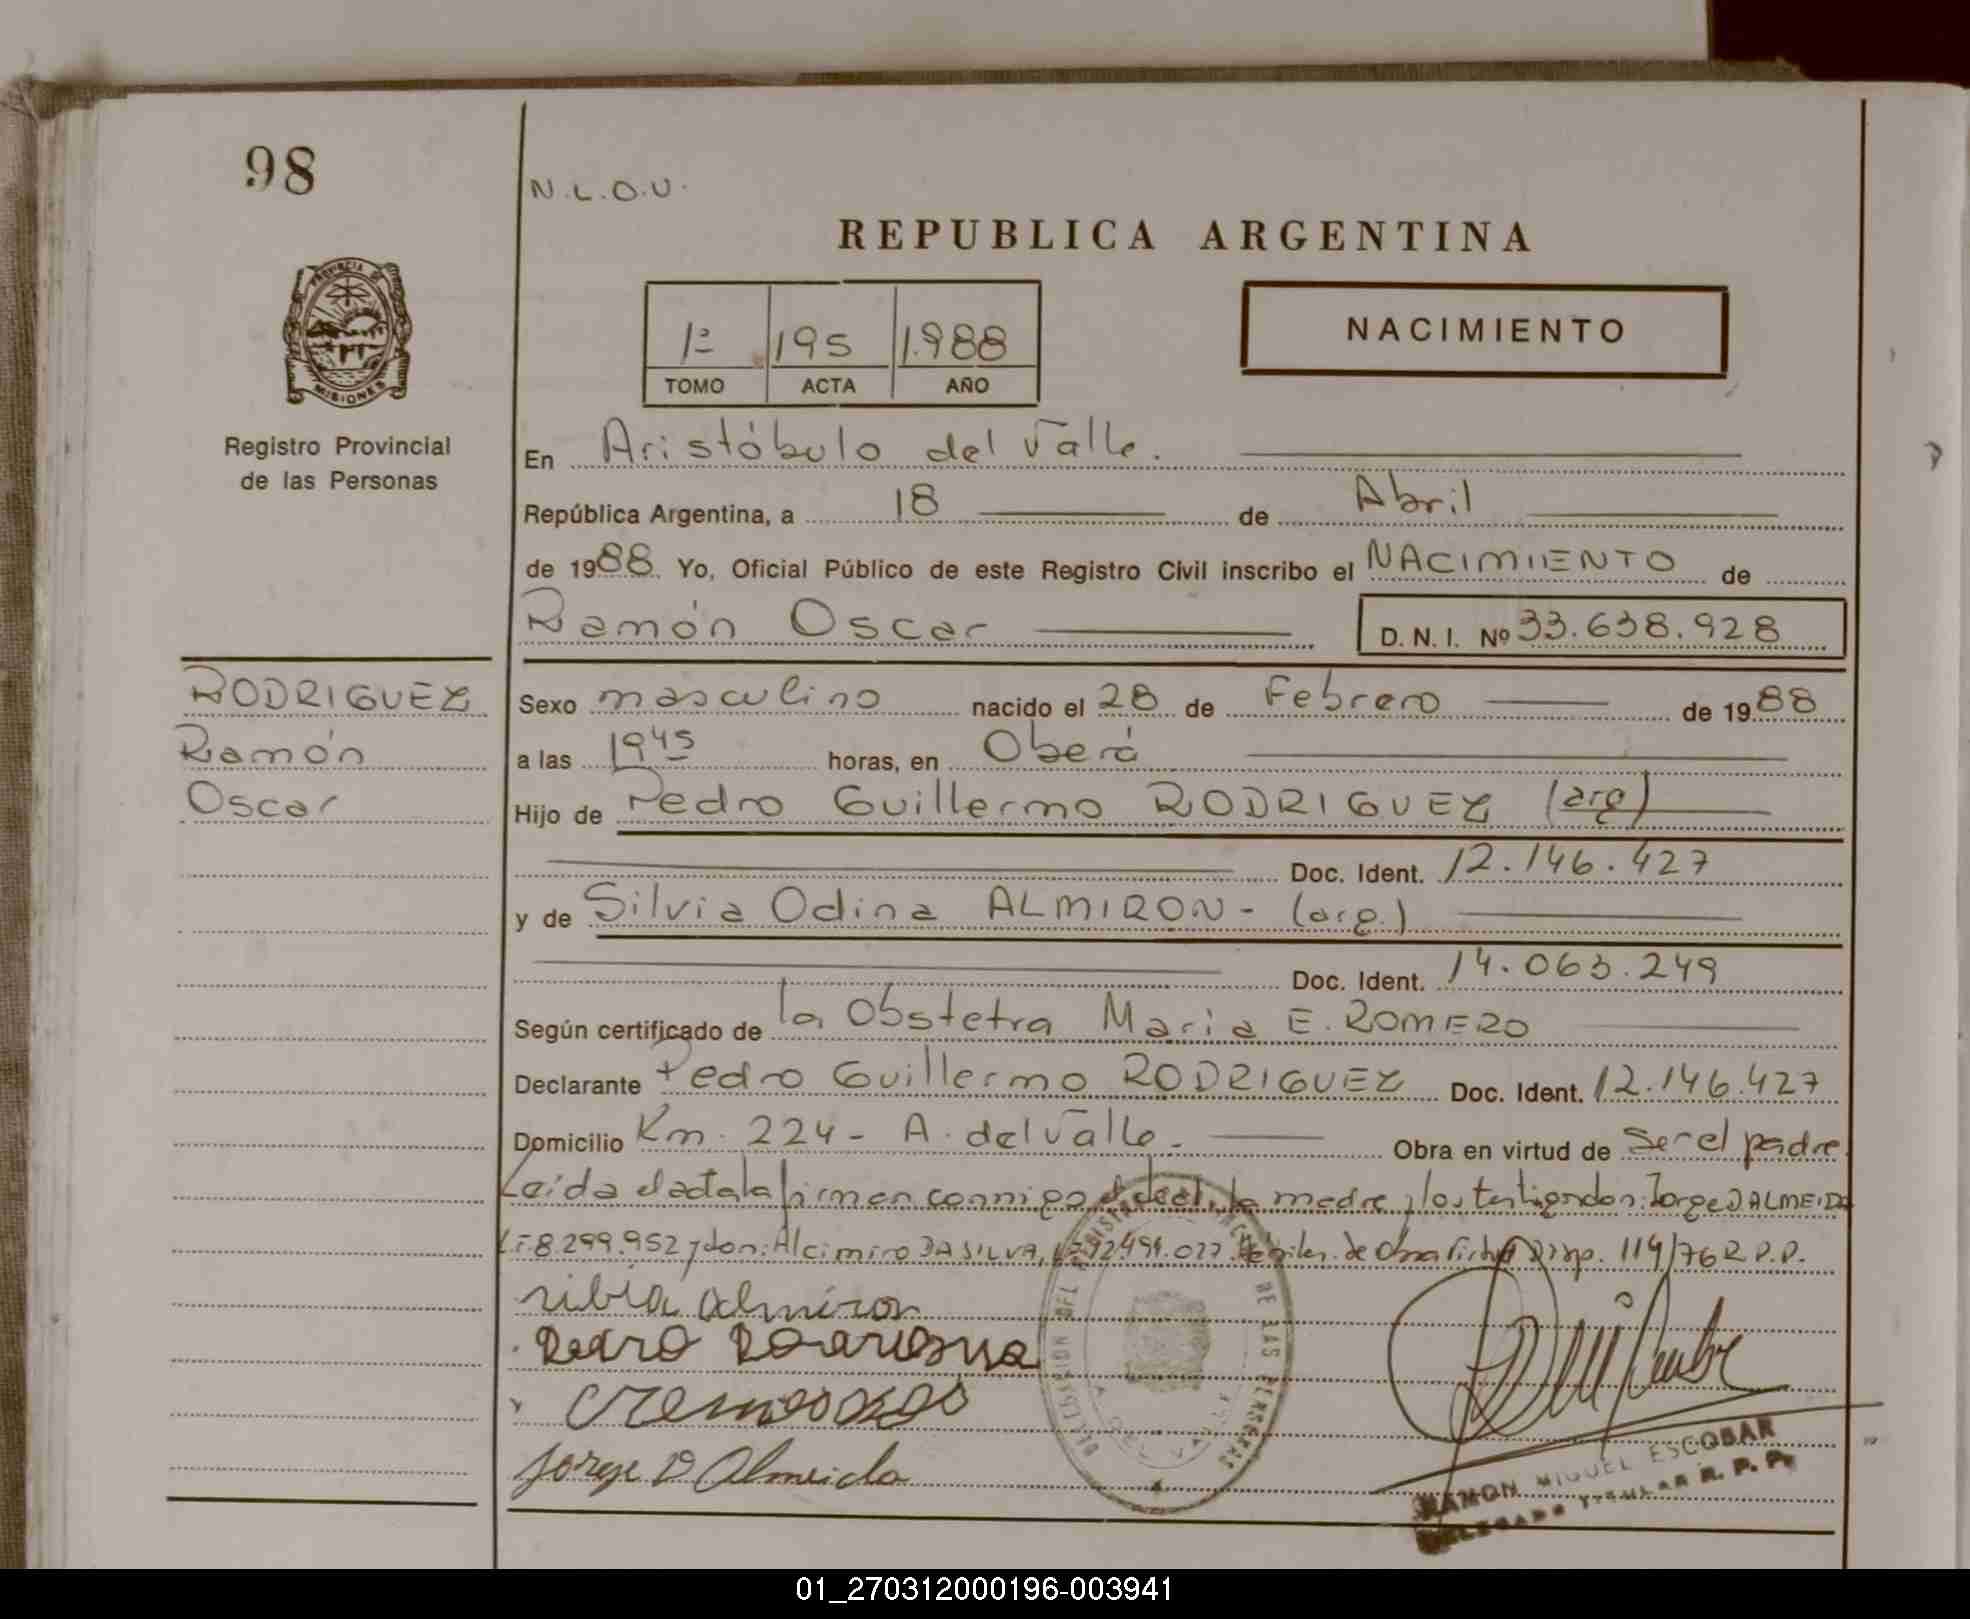 98
N.L.O.U.
REPUBLICA ARGENTINA
PROVINCIA DE
MISIONES
Registro Provincial
de las Personas
1º 195 1.988
TOMO ACTA AÑO
NACIMIENTO
En Aristóbulo del Valle.
República Argentina, a 18 de Abril
de 1988. Yo, Oficial Público de este Registro Civil inscribo el NACIMIENTO de
Ramón Oscar D. N. I. Nº 33.638.928
RODRIGUEZ
Ramón
Oscar
Sexo masculino nacido el 28 de Febrero de 1988
a las 19 45 horas, en Oberá
Hijo de Pedro Guillermo RODRIGUEZ (arg)
Doc. Ident. 12.146.427
y de Silvia Odina ALMIRON - (arg.)
Doc. Ident. 14.063.249
Según certificado de la Obstetra Maria E. ROMERO
Declarante Pedro Guillermo RODRIGUEZ Doc. Ident. 12.146.427
Domicilio Km. 224 - A. del Valle. Obra en virtud de ser el padre.
Leída el acta la firman conmigo el decl, la madre y los testigos don: Jorge D ALMEIDA
8.299.952 y don: Alcimiro DA SILVA, Disp. 114/76 R.P.P.
silvia almiron
Pedro
Jorge D Almeida
DELEGACION DEL REGISTRO PROVINCIAL DE LAS PERSONAS
A. DEL VALLE
RAMON MIGUEL ESCOBAR
DELEGADO TITULAR R. P. P.
01_270312000196-003941